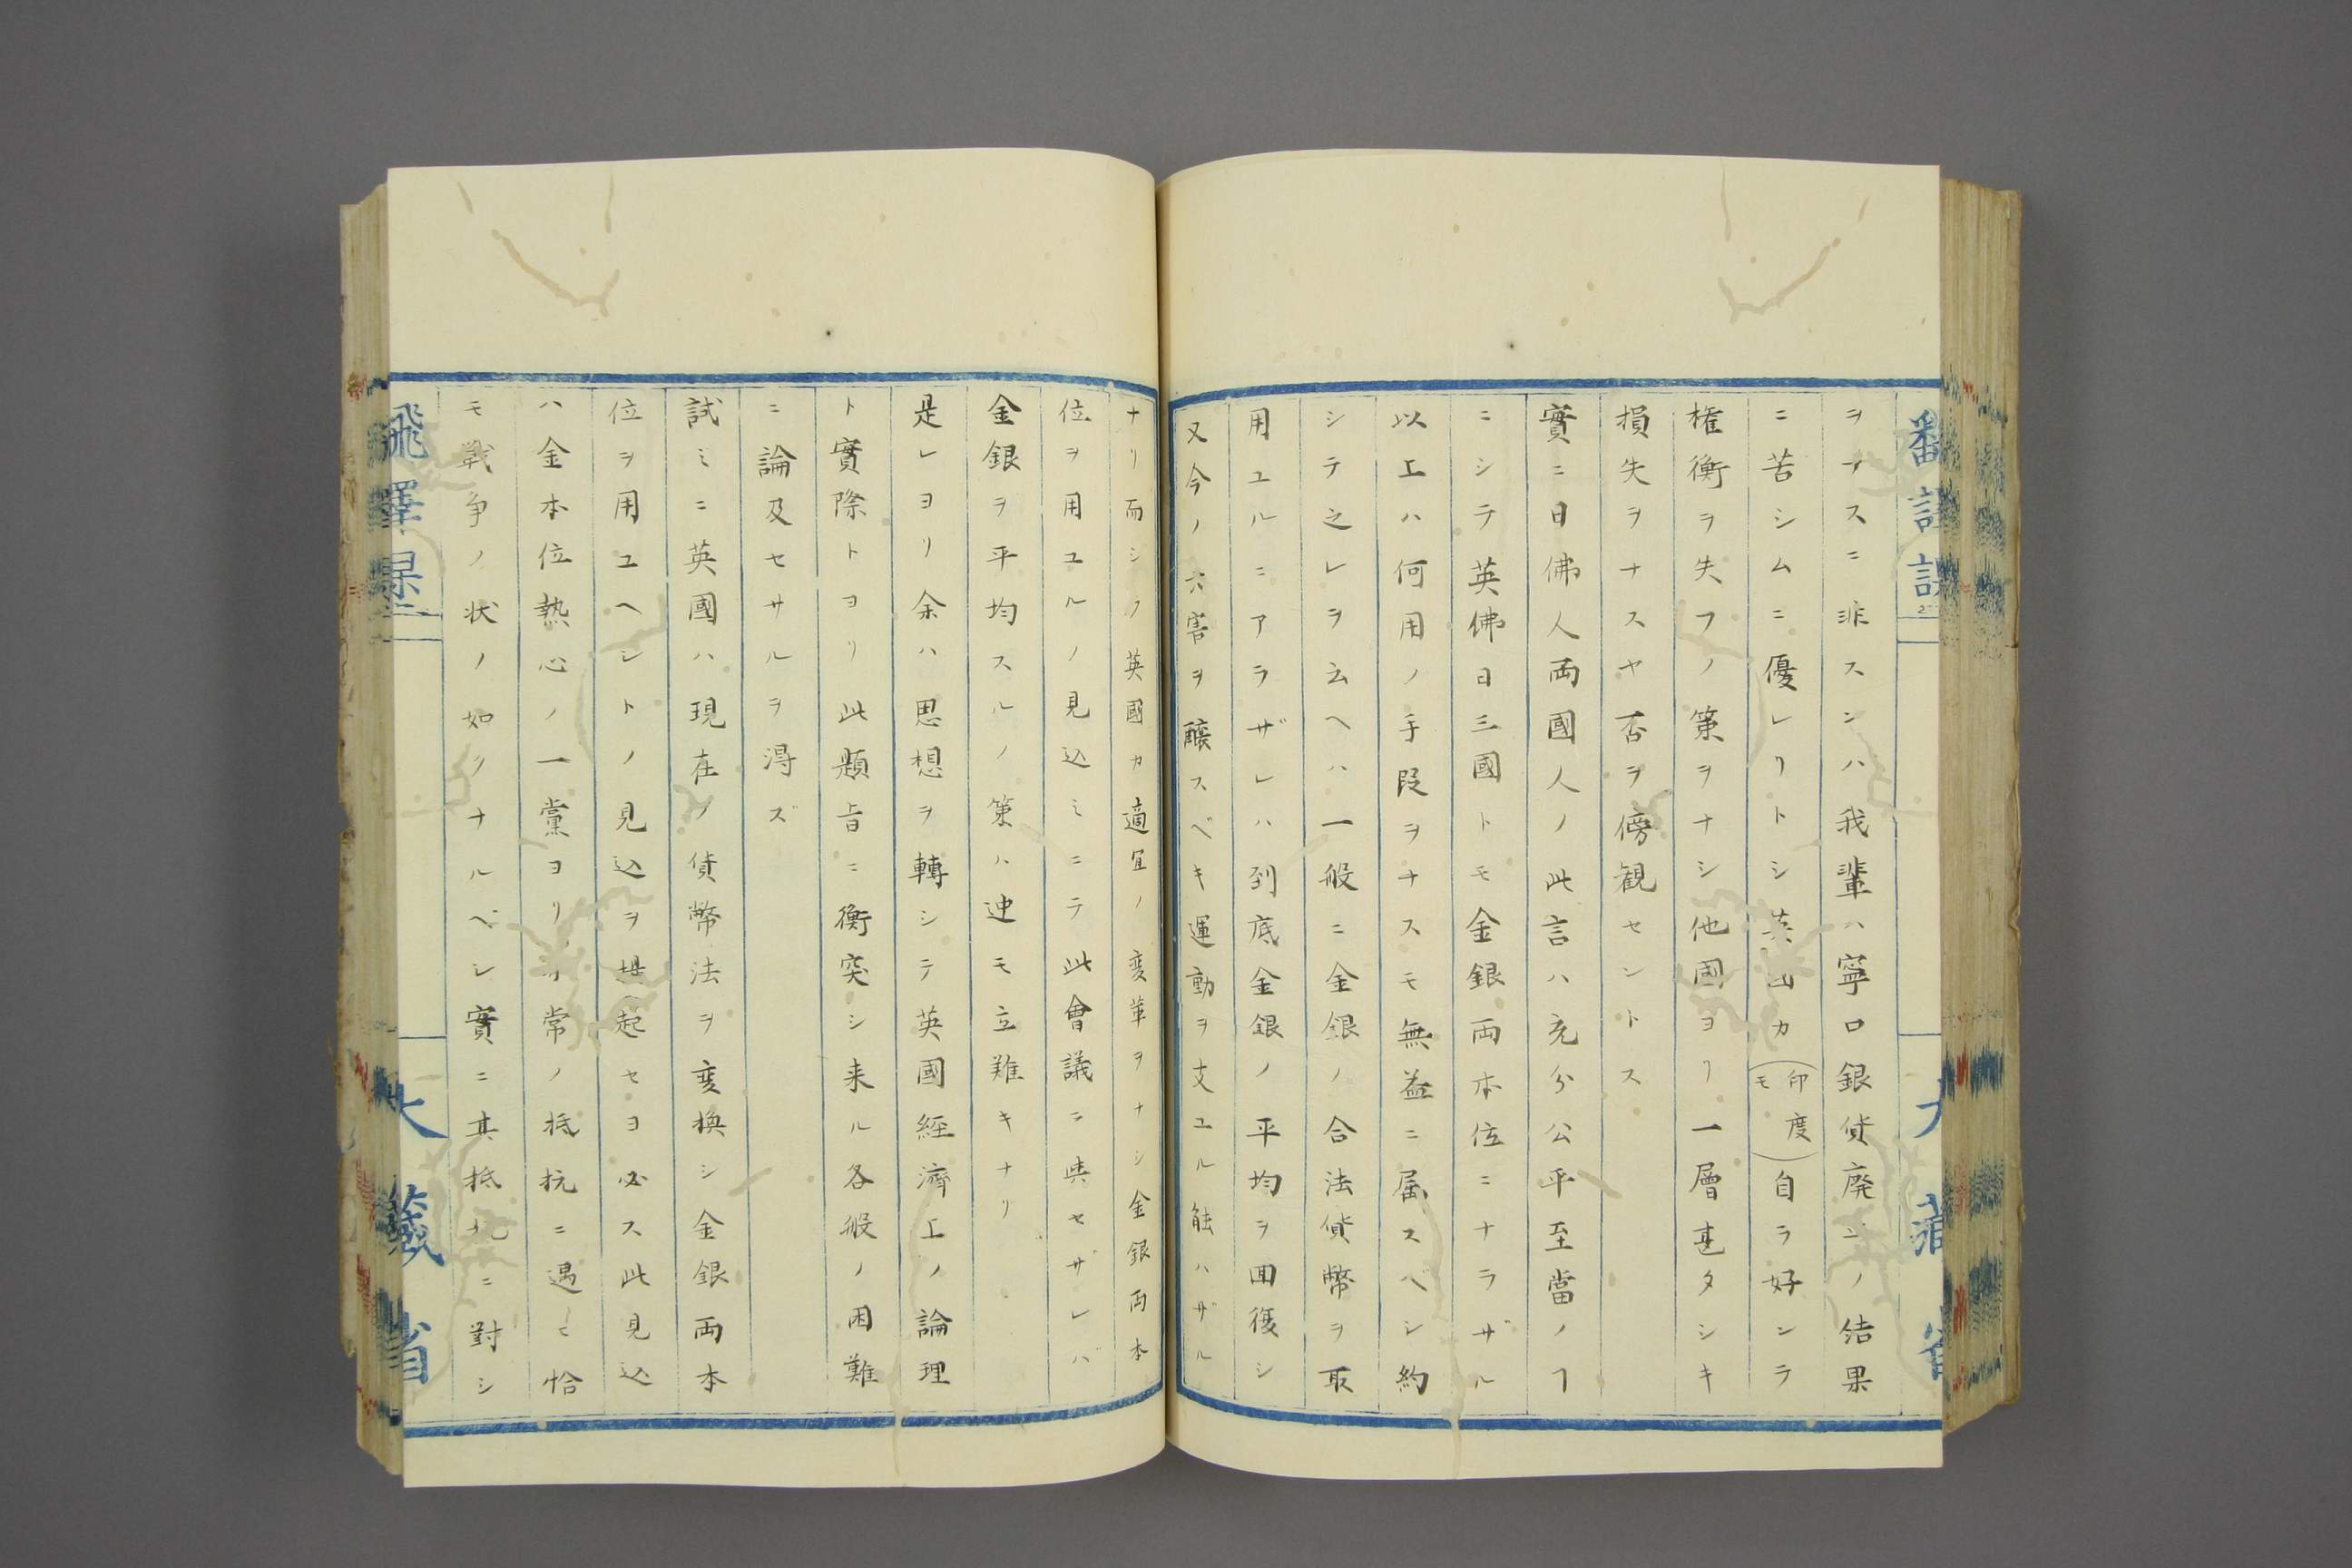 ヲナスニ非スンハ我輩ハ寧ロ銀貨廃止ノ結果
ニ苦シムニ優レリトシ英国カ(印度モ)自ラ好ンテ
権衡ヲ失フノ策ヲナシ他国ヨリ一層甚タシキ
損失ヲナスヤ否ヲ傍観セントス
實ニ日佛人両國人ノ此言ハ充分公平至當ノヿ
ニシテ英佛日三國トモ金銀両本位ニナラザル
以上ハ何用ノ手段ヲナスモ無益ニ属スヘシ約
シテ之レヲ云ヘハ一般ニ金銀ノ合法貨幣ヲ取
用ユルニアラザレハ到底金銀ノ平均ヲ囬復シ
又今ノ大害ヲ醸スベキ運動ヲ支ユル能ハザル
ナリ而シノ英國カ適宜ノ変革ヲナシ金銀両本
位ヲ用ユルノ見込ミニテ此會議ニ與セザレバ
金銀ヲ平均スルノ策ハ迚モ立難キナリ
是レヨリ余ハ思想ヲ轉シテ英國經濟上ノ論理
ト實際トヨリ此題旨ニ衡突シ来ル各般ノ困難
ニ論及セサルヲ淂ズ
試ミニ英國ハ現在ノ貨幣法ヲ変換シ金銀両本
位ヲ用ユヘシトノ見込ヲ提起セヨ必ス此見込
ハ金本位熱心ノ一黨ヨリ非常ノ抵抗ニ遇ヒ恰
モ戦争ノ状ノ如クナルベシ實ニ其抵抗ニ對シ
飜譯課
大藏省